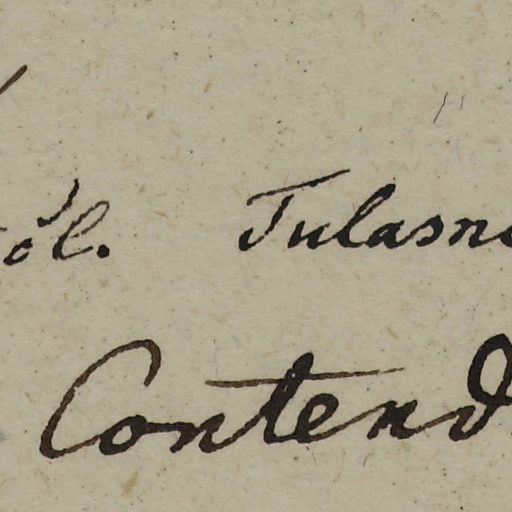 öl. Tulasn
Contend